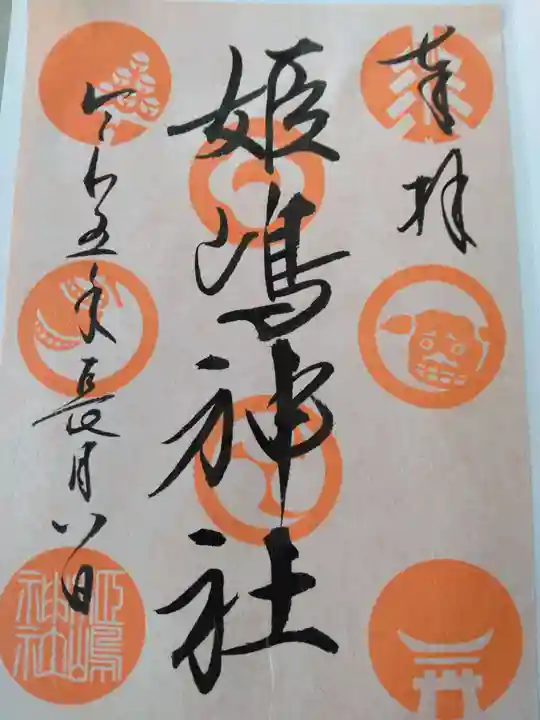 奉拝
姫嶋神社
令和五年長月八日
姫嶋神社